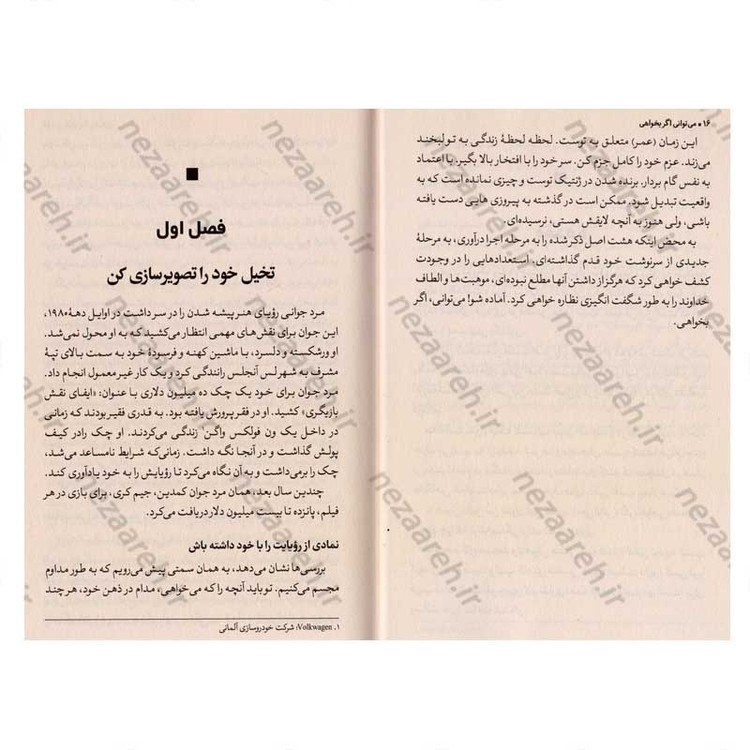 ۱۶ • می‌توانی اگر بخواهی
این زمان (عمر) متعلق به توست. لحظه لحظهٔ زندگی به تو لبخند
می‌زند. عزم خود را کامل جزم کن. سر خود را با افتخار بالا بگیر. با اعتماد
به نفس گام بردار. برنده شدن در ژنتیک توست و چیزی نمانده است که به
واقعیت تبدیل شود. ممکن است در گذشته به پیروزی هایی دست یافته
باشی، ولی هنوز به آنچه لایقش هستی، نرسیده‌ای.
به محض اینکه هشت اصل ذکر شده را به مرحله اجرا درآوری، به مرحلهٔ
جدیدی از سرنوشت خود قدم گذاشته‌ای. استعدادهایی را در وجودت
کشف خواهی کرد که هرگز از داشتن آنها مطلع نبوده‌ای، موهبت‌ها و الطاف
خداوند را به طور شگفت انگیزی نظاره خواهی کرد. آماده شو! می‌توانی، اگر
بخواهی.
فصل اول
تخیل خود را تصویرسازی کن
مرد جوانی رؤیای هنرپیشه شدن را در سر داشت در اوایل دههٔ ۱۹۸۰،
این جوان برای نقش‌های مهمی انتظار می‌کشید که به او محول نمی‌شد.
او ورشکسته و دلسرد، با ماشین کهنه و فرسودهٔ خود به سمت بالای تپهٔ
مشرف به شهر لس آنجلس رانندگی کرد و یک کار غیر معمول انجام داد.
مرد جوان برای خود یک چک ده میلیون دلاری با عنوان: «ایفای نقش
بازیگری» کشید. او در فقر پرورش یافته بود. به قدری فقیر بودند که زمانی
در داخل یک ون فولکس واگن۱ زندگی می‌کردند. او چک را در کیف
پولش گذاشت و در آنجا نگه داشت. زمانی‌که شرایط نامساعد می‌شد،
چک را برمی‌داشت و به آن نگاه می‌کرد تا رؤیایش را به خود یادآوری کند.
چندین سال بعد، همان مرد جوان کمدین، جیم کری، برای بازی در هر
فیلم، پانزده تا بیست میلیون دلار دریافت می‌کرد.
نمادی از رؤیایت را با خود داشته باش
بررسی‌ها نشان می‌دهد، به همان سمتی پیش می‌رویم که به طور مداوم
مجسم می‌کنیم. تو باید آنچه را که می‌خواهی، مدام در ذهن خود، هر چند
۱. Volkwagen: شرکت خودروسازی آلمانی
nezaareh.ir
nezaareh.ir
nezaareh.ir
nezaareh.ir
nezaareh.ir
nezaareh.ir